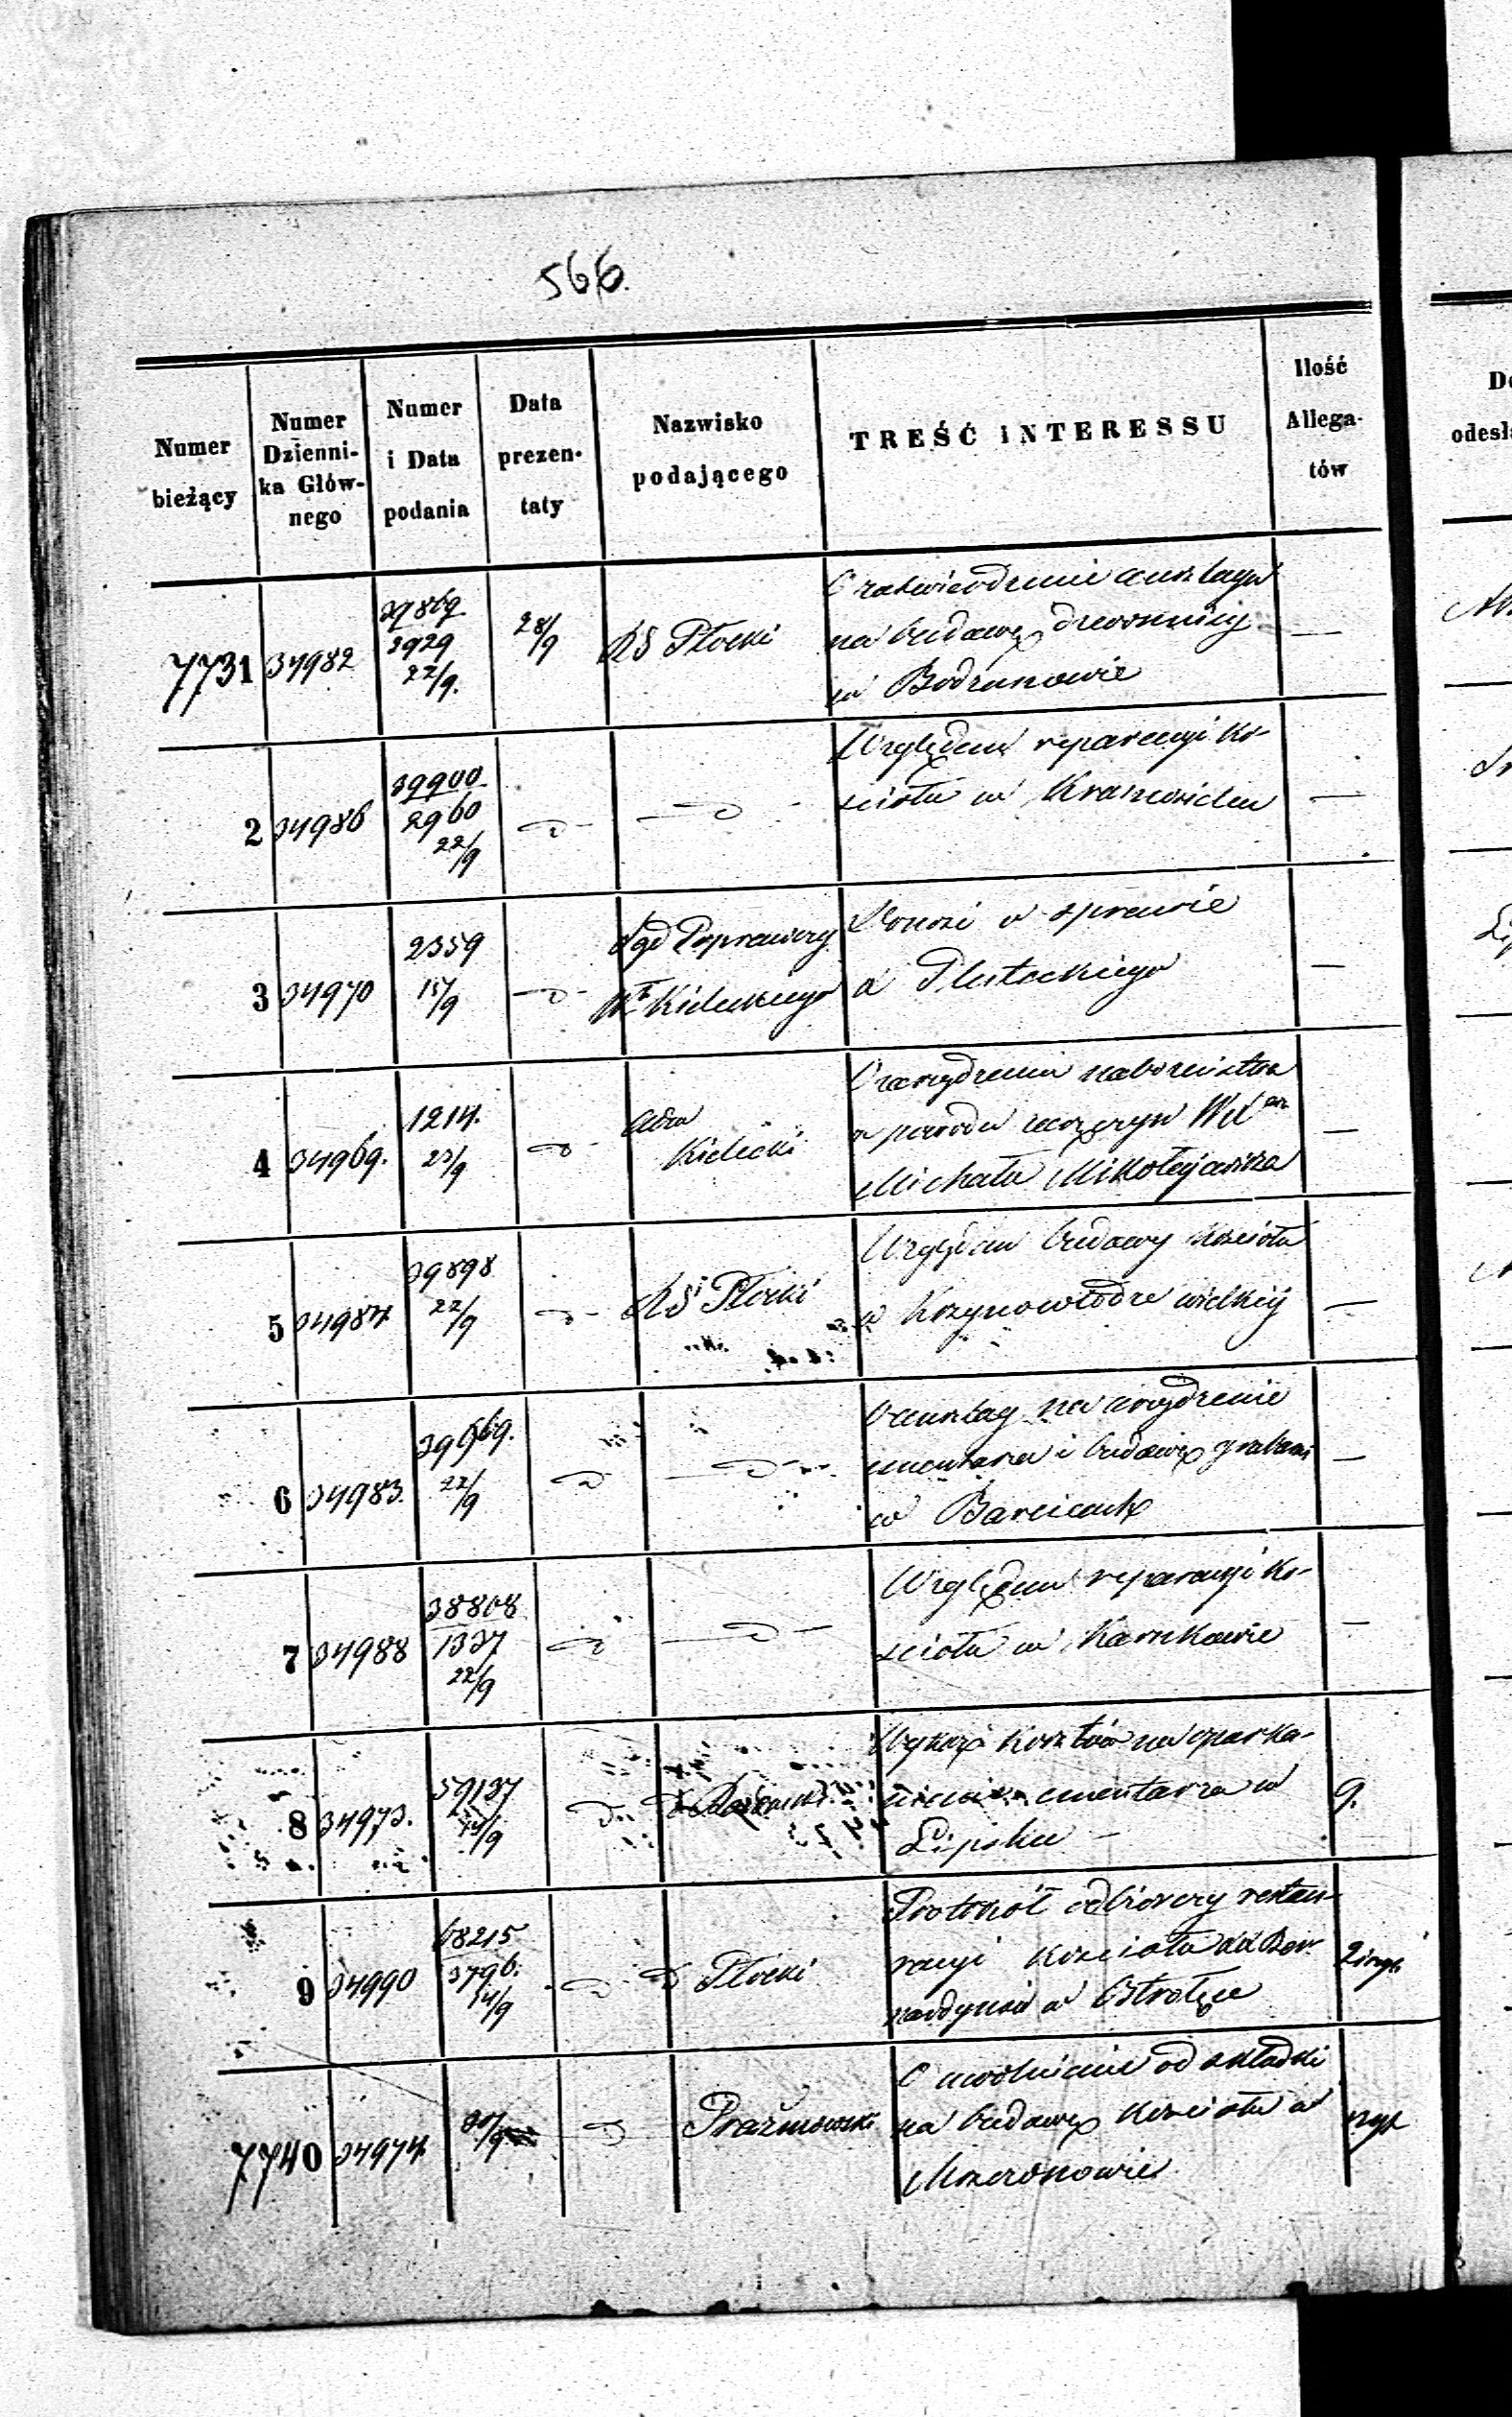 566.
Numer bieżący
Numer Dzienni-ka Głów-nego
Numer i Data podania
Data prezen-taty
Nazwisko podającego
TREŚĆ INTERESSU
Ilość Allega-tów
7731 34982 39869 2929 22/9. 28/9 RG Płocki
O zatwierdzenie anszlagu
na budowę dzwonnicy
w Bodzanowie —
2 34986 39900 2960 22/9 — D — — D —
Względem reparacyi Ko-
ścioła w —
3 34970 2359 15/9 — D — Sąd Poprawczy
Wu Kieleckiego
Donosi o sprawie
X —
4 34969. 1214. 23/9 D — Adm Kielecki
O nabożeństwa
z powodu
Michała Mikołajewicza —
5 34984 39898 22/9 D — RG Płocki
Względem budowy Kościoła
w Krzynowłodze wielkiej —
6 34983. 39969. 22/9 D — D —
O anszlag na urządzenie
cmentarza i budowę
w Barcicach —
7 34988 38808 1337 22/9 — D — — D —
Względem reparacyi Ko-
ścioła w Karnkowie —
8 34973. 59137 /9 D D Radomski
Wykaz Kosztów na oparka-
nienie cmentarza w
Lipsku — 9.
9 34990 68215 3796. 14/9 — D — D Płocki
Protokół odbiorczy restau-
racyi Kościoła XX Ber-
nardynów w Ostrołęce
7740 34974 20/9 D Prażmowski
O uwolnienie od składki
na budowę Kościoła w
Mszczonowie
De
odesł